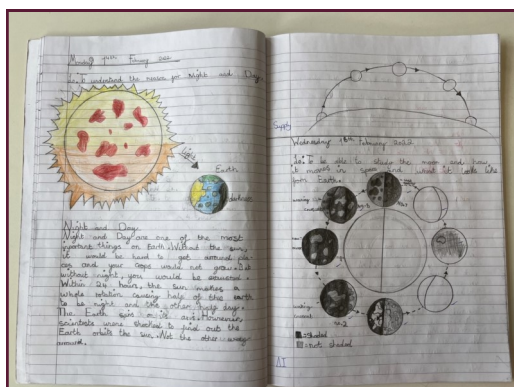 Monday February 2022
lo: To understand the reason for Night and Day.
light
Earth
darkness
Night and Day
Night and Day are one of the most
inportant things on Earth. Without the sun,
it would be hard to get around pla-
ces and your crops would not grow.
without night, you would be
Within 24 hours, the sun makes a
whole rotation causing half of the earth
to be night and the other half day.
The Earth spins on it axis. However,
scientists were shocked to find out the
Earth orbits the sun. Not the other way
around.
Supp
Wednesday February 2022
lo: To be able to study the moon and how
it moves in space and what it looks like
from Earth.
waxing
waning
shaded
not shaded
AI